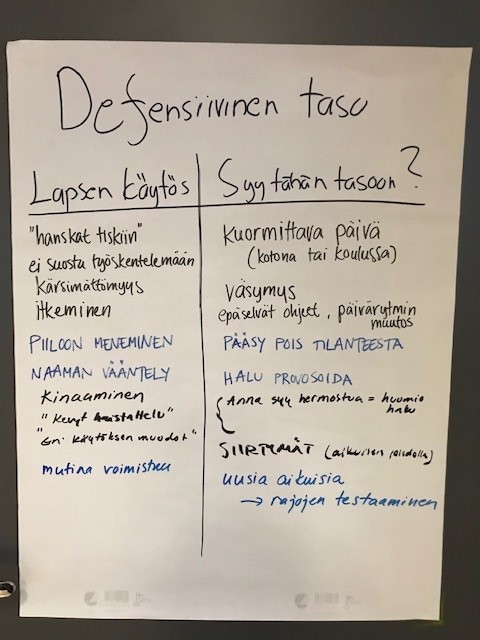 Defensiivinen taso
Lapsen käytös
"hanskat tiskiin"
ei suostu työskentelemään
kärsimättömyys
itkeminen
PIILOON MENEMINEN
NAAMAN VÄÄNTELY
Kinaaminen
"kevyt haistattelu"
"Eri käytöksen muodot"
mutina voimistuu
Syy tähän tasoon?
Kuormittava päivä
(kotona tai koulussa)
väsymys
epäselvät ohjeet, päivärytmin
muutos
PÄÄSY POIS TILANTEESTA
HALU PROVOSOIDA
Anna syy hermostua = huomio
halu
SIIRTYMÄT (aikuisen
uusia aikuisia
→ rajojen testaaminen